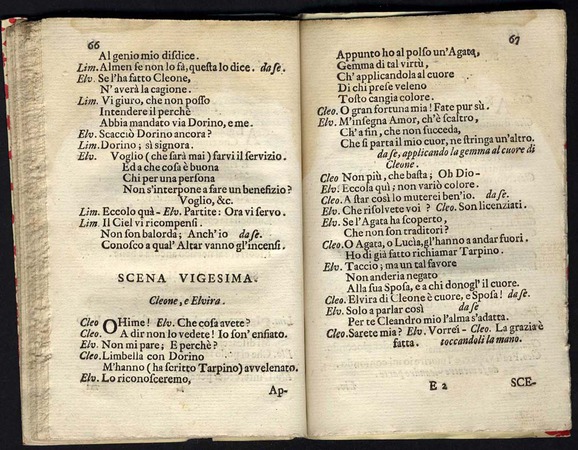 66
Al genio mio disdice.
Lim. Almen se non lo fà, questa lo dice. da se.
Elv. Se l'ha fatto Cleone,
N' averà la cagione.
Lim. Vi giuro, che non posso
Intendere il perchè
Abbia mandato via Dorino, e me.
Elv. Scacciò Dorino ancora?
Lim. Dorino; sì signora.
Elv. Voglio (che sarà mai) farvi il servizio.
Ed a che cosa è buona
Chi per una persona
Non s'interpone a fare un benefizio?
Voglio, &c.
Lim. Eccolo quà- Elv. Partite: Ora vi servo.
Lim. Il Ciel vi ricompensi.
Non son balorda; Anch'io da se.
Conosco a qual' Altar vanno gl'incensi.
SCENA VIGESIMA.
Cleone, e Elvira.
Cleo OHime! Elv. Che cosa avete?
Cleo. A dir non lo vedete! Io son' enfiato.
Elv. Non mi pare; E perchè?
Cleo. Limbella con Dorino
M'hanno (ha scritto Tarpino) avvelenato.
Elv. Lo riconosceremo,
Ap-
67
Appunto ho al polso un'Agata,
Gemma di tal virtù,
Ch' applicandola al cuore
Di chi prese veleno
Tosto cangia colore.
Cleo. O gran fortuna mia! Fate pur sù.
Elv. M'insegna Amor, ch'è scaltro,
Ch' a fin, che non succeda,
Che si parta il mio cuor, ne stringa un'altro.
da se, applicando la gemma al cuore di
Cleone.
Cleo Non più, che basta; Oh Dio-
Elv. Eccola quì; non variò colore.
Cleo. A star così lo muterei ben'io. da se.
Elv. Che risolvete voi? Cleo. Son licenziati.
Elv. Se l'Agata ha scoperto,
Che non son traditori?
Cleo. O Agata, o Lucìa, gl'hanno a andar fuori.
Ho di già fatto richiamar Tarpino.
Elv. Taccio; ma un tal favore
Non anderia negato
Alla sua Sposa, e a chi donogl' il cuore.
Cleo. Elvira di Cleone è cuore, e Sposa! da se
Elv. Solo a parlar così da se
Per te Cleandro mio l'alma s'adatta.
Cleo. Sarete mia? Elv. Vorreì - Cleo. La grazia è
fatta. toccandoli la mano.
E 2
SCE-